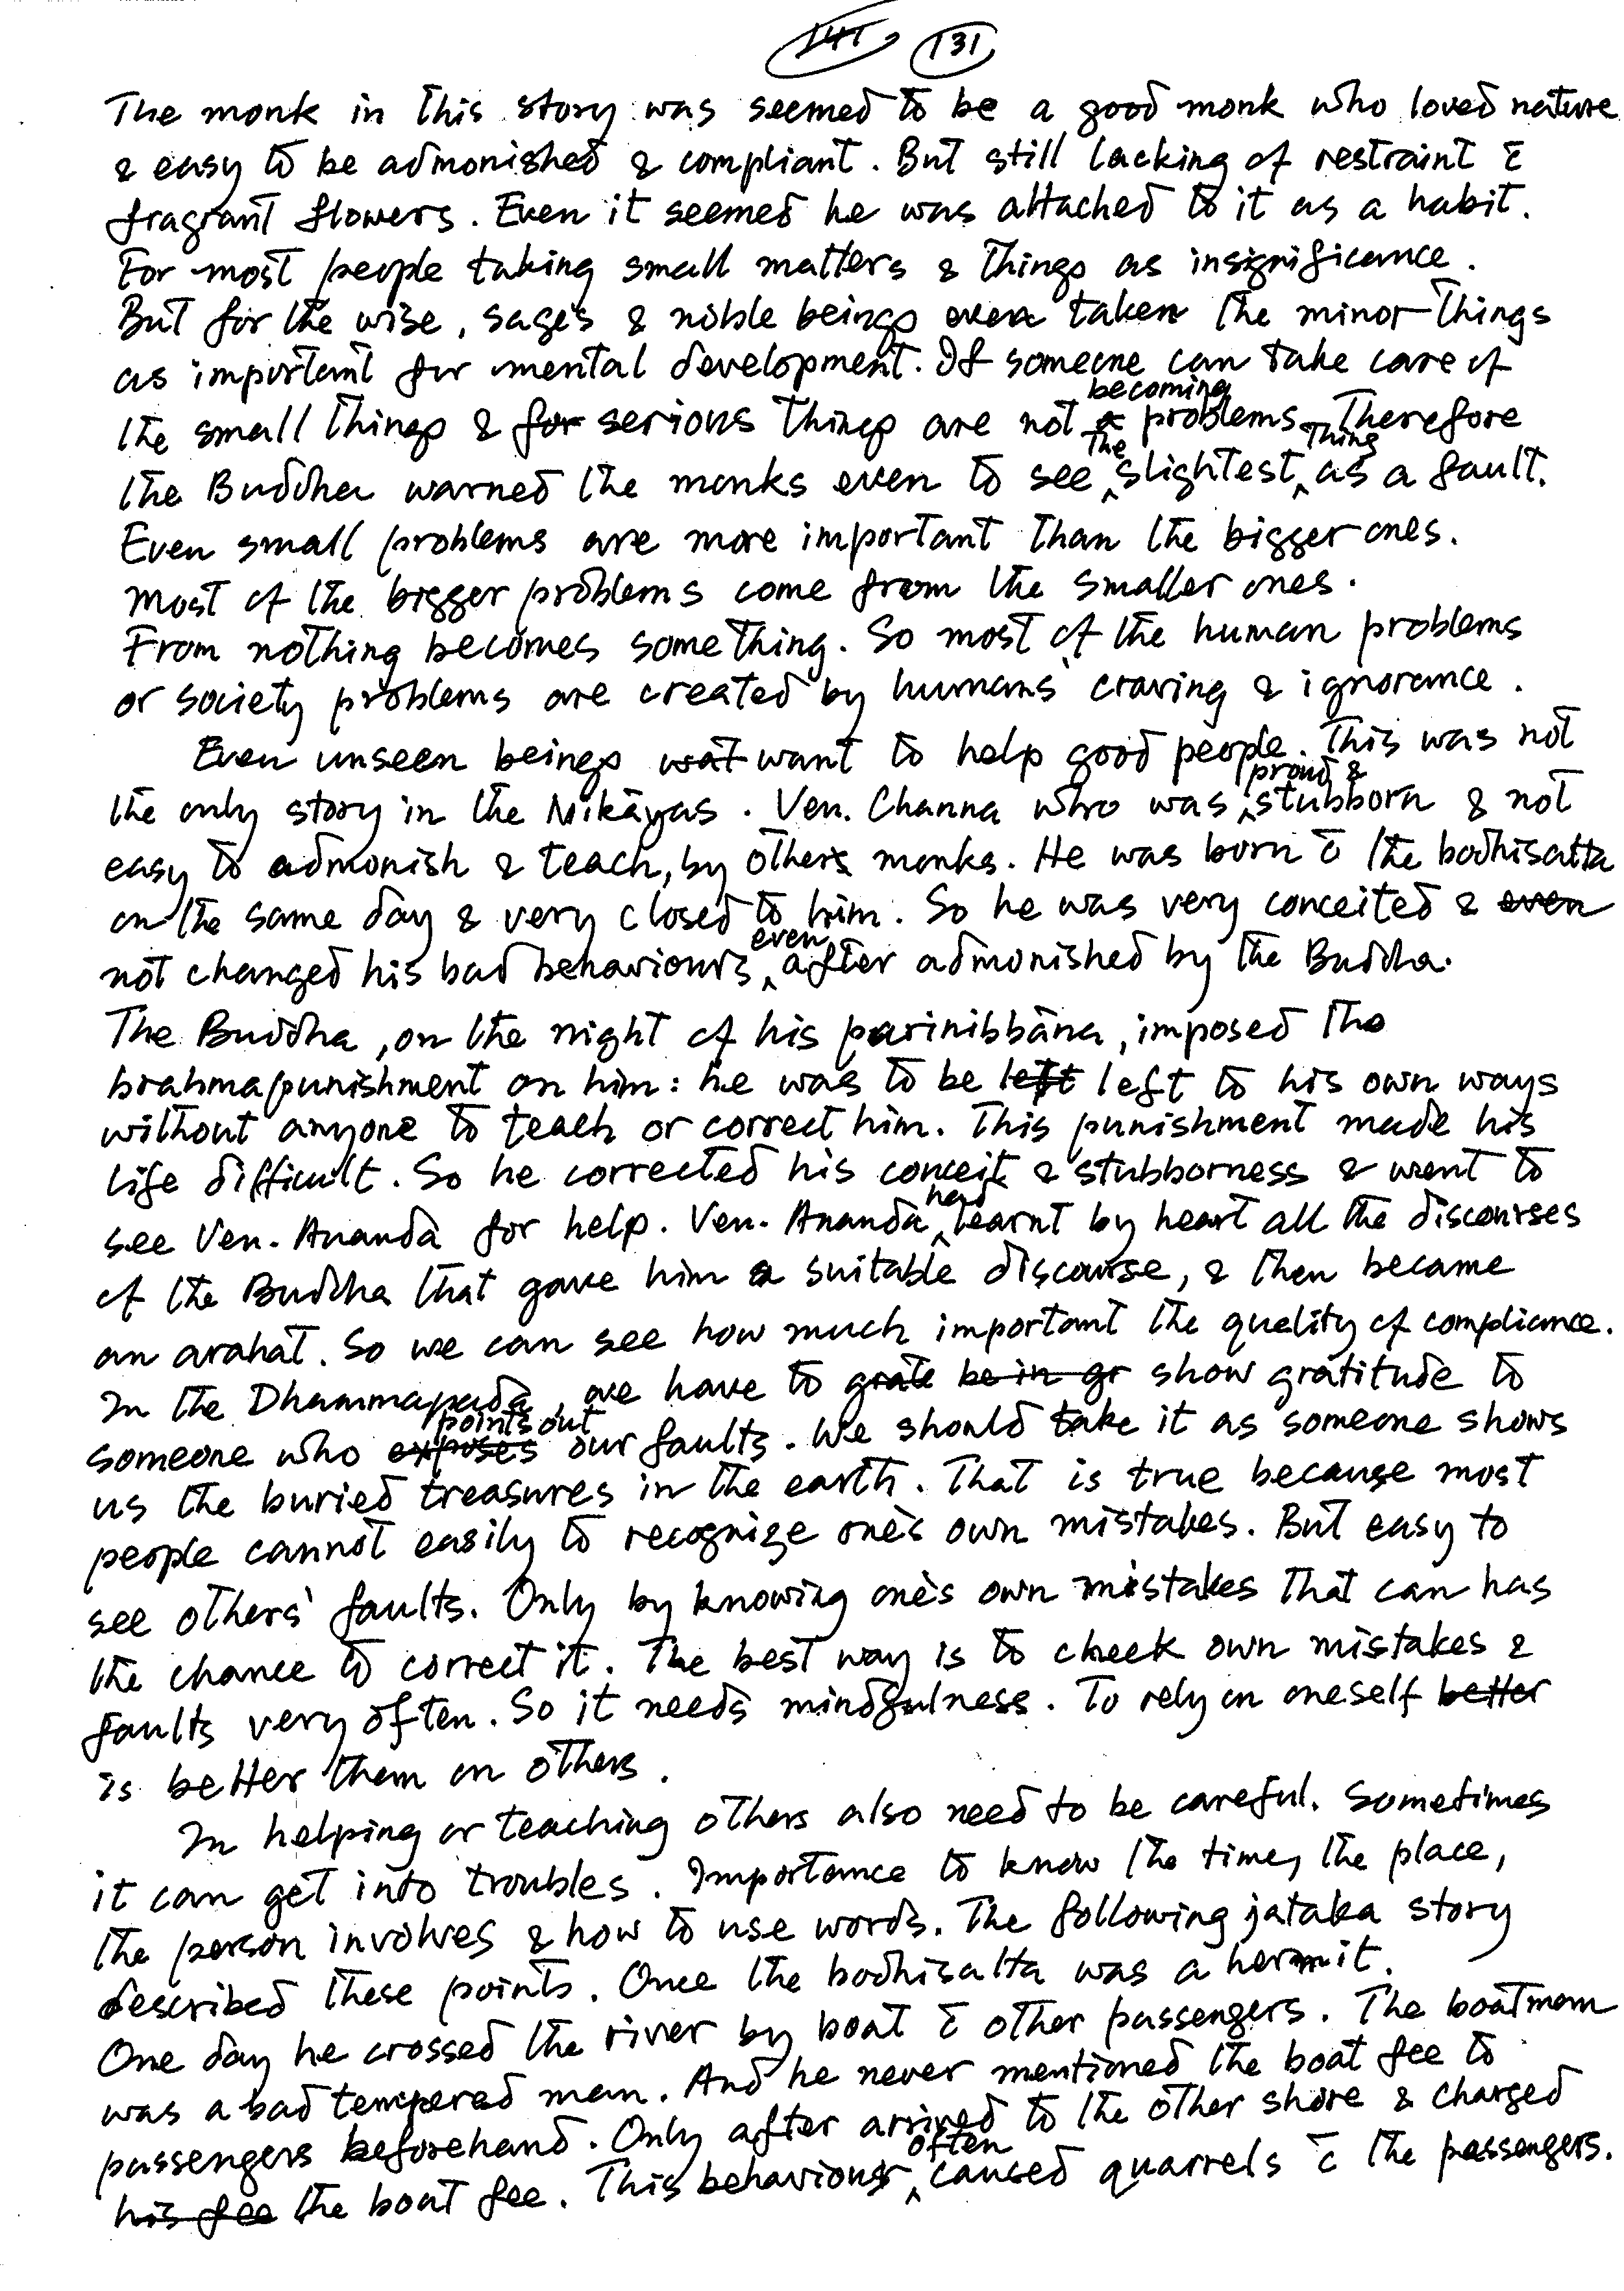 131
The monk in this story was seemed to be a good monk who loved nature
& easy to be admonished & compliant. But still lacking of restraint c̄
fragrant flowers. Even it seemed he was attached to it as a habit.
For most people taking small matters & things as insignificance.
But for the wise, sages & noble beings even taken the minor things
as important for mental development. If someone can take care of
the small things & serious things are not becoming problems. Therefore
the Buddha warned the monks even to see the slightest thing as a fault.
Even small problems are more important than the bigger ones.
Most of the bigger problems come from the smaller ones.
From nothing becomes something. So most of the human problems
or society problems are created by humans' craving & ignorance.
Even unseen beings want to help good people. This was not
the only story in the Nikāyas. Ven. Channa who was proud & stubborn & not
easy to admonish & teach, by others monks. He was born c̄ the bodhisatta
on the same day & very closed to him. So he was very conceited &
not changed his bad behaviours even after admonished by the Buddha.
The Buddha, on the night of his parinibbāna, imposed the
brahmapunishment on him: he was to be left to his own ways
without anyone to teach or correct him. This punishment made his
life difficult. So he corrected his conceit & stubborness & went to
see Ven. Ananda for help. Ven. Ananda had learnt by heart all the discourses
of the Buddha that gave him a suitable discourse, & then became
an arahat. So we can see how much important the quality of compliance.
In the Dhammapada, we have to show gratitude to
someone who points out our faults. We should take it as someone shows
us the buried treasures in the earth. That is true because most
people cannot easily to recognize one's own mistakes. But easy to
see others' faults. Only by knowing one's own mistakes that can has
the chance to correct it. The best way is to check own mistakes &
faults very often. So it needs mindfulness. To rely on oneself
is better than on others.
In helping or teaching others also need to be careful. Sometimes
it can get into troubles. Importance to know the time, the place,
the person involves & how to use words. The following jataka story
described these points. Once the bodhisatta was a hermit.
One day he crossed the river by boat c̄ other passengers. The boatman
was a bad tempered man. And he never mentioned the boat fee to
passengers beforehand. Only after arrived to the other shore & charged
the boat fee. This behaviour often caused quarrels c̄ the passengers.